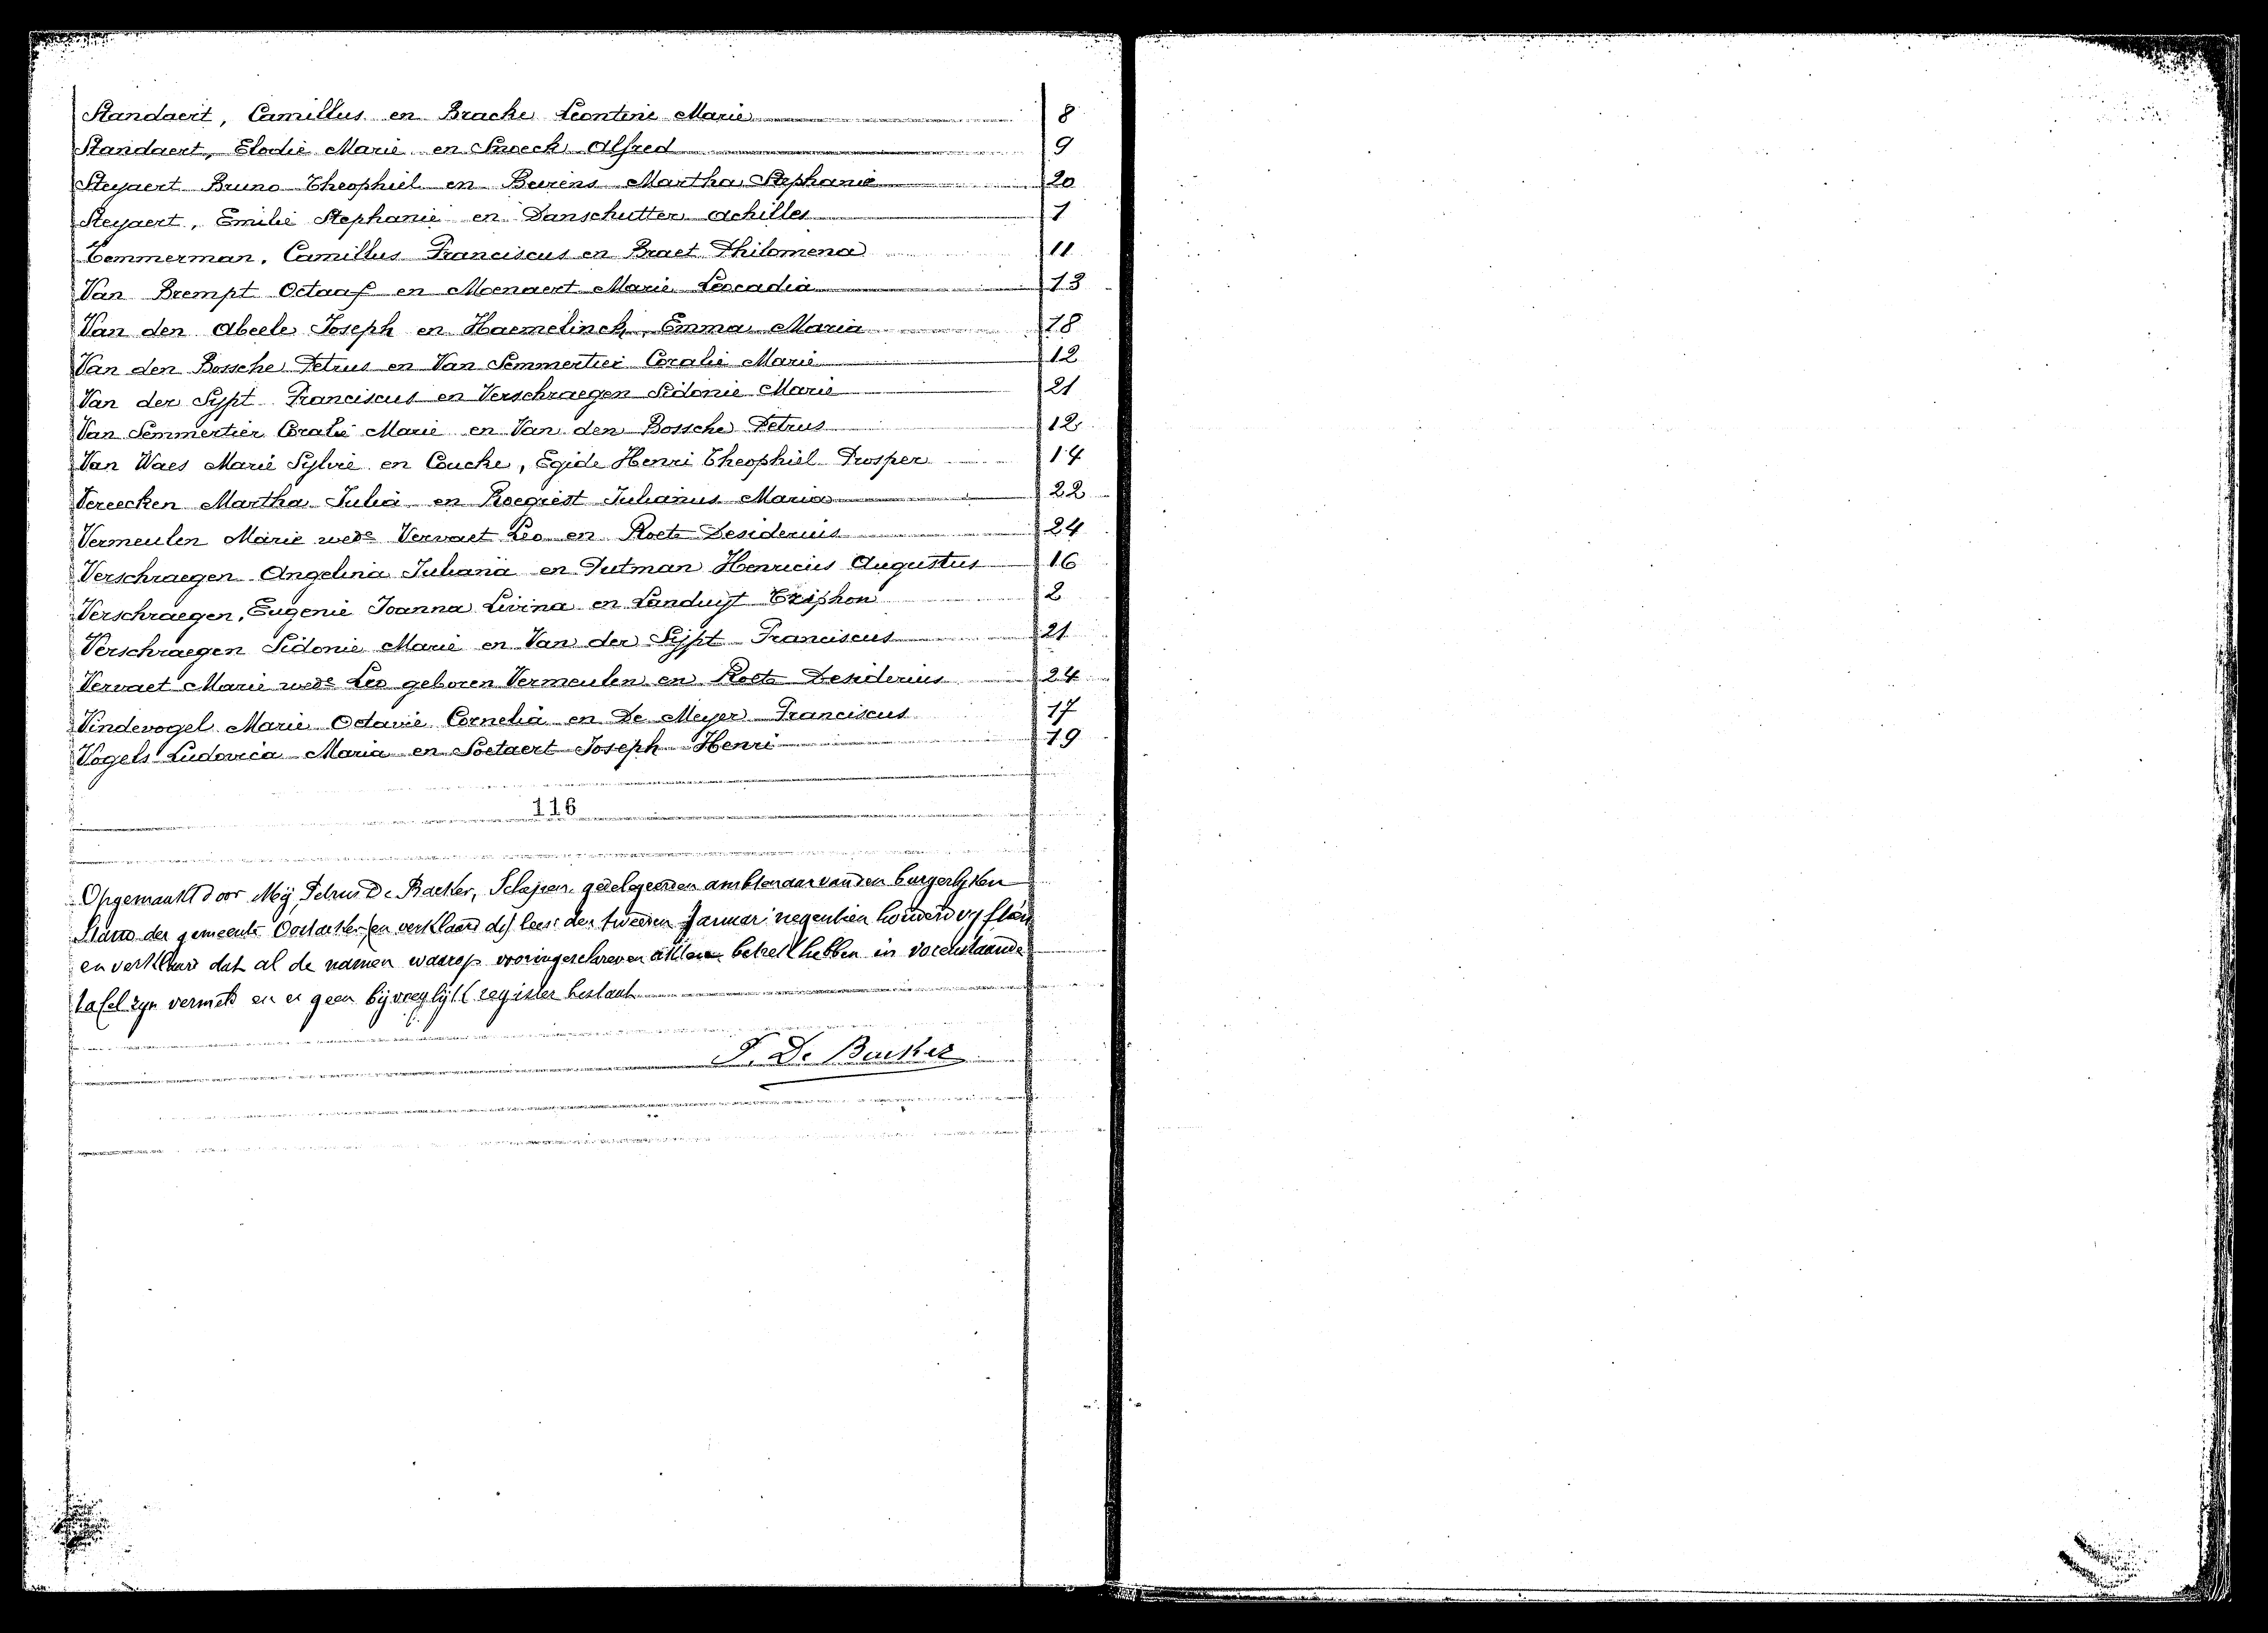 Standaert, Camillus en Bracke Leontine Marie 8
Standaert, Elodie Marie en Snoeck Alfred 9
Steyaert Bruno Theophiel en Beirens Martha Stephanie 20
Steyaert, Emilie Stephanie en Danschutter Achilles 1
Temmerman, Camillus Franciscus en Braet Philomena 11
Van Brempt Octaaf en Moenaert Marie Leocadia 13
Van den Abeele Joseph en Haemelinck, Emma Maria 18
Van den Bossche Petrus en Van Semmertier Coralie Marie 12
Van der Sypt Franciscus en Verschraegen Sidonie Marie 21
Van Semmertier Coralie Marie en Van den Bossche Petrus 12
Van Waes Marie Sylvie en Coucke, Egide Henri Theophiel Prosper 14
Vereecken Martha Julia en Roegiest Julianus Maria 22
Vermeulen Marie wede Vervaet Leo en Roets Desiderius 24
Verschraegen Angelina Juliana en Putman Henricus Augustus 16
Verschraegen, Eugenie Joanna Livina en Landuyt Triphon 2
Verschraegen Sidonie Marie en Van der Sijpt Franciscus 21
Vervaet Marie wede Leo geboren Vermeulen en Roets Desiderius 24
Vindevogel Marie Octavie Cornelia en De Meyer Franciscus 17
Vogels Ludovica Maria en Soetaert Joseph Henri 19
116
Opgemaakt door Mij Petrus De Backer, Schepen, gedelegeerden ambtenaar van den burgerlyken
Stand der gemeente Oostacker en verklaard de) lees: den tweeden Januari negentien honderd vyftien
en verklaard dat al de namen waarop vooringeschreven akten betrek hebben in voorenstaande
tafel zyn vermeld en er geen bijvoeglijk register bestaat
P. De Backer